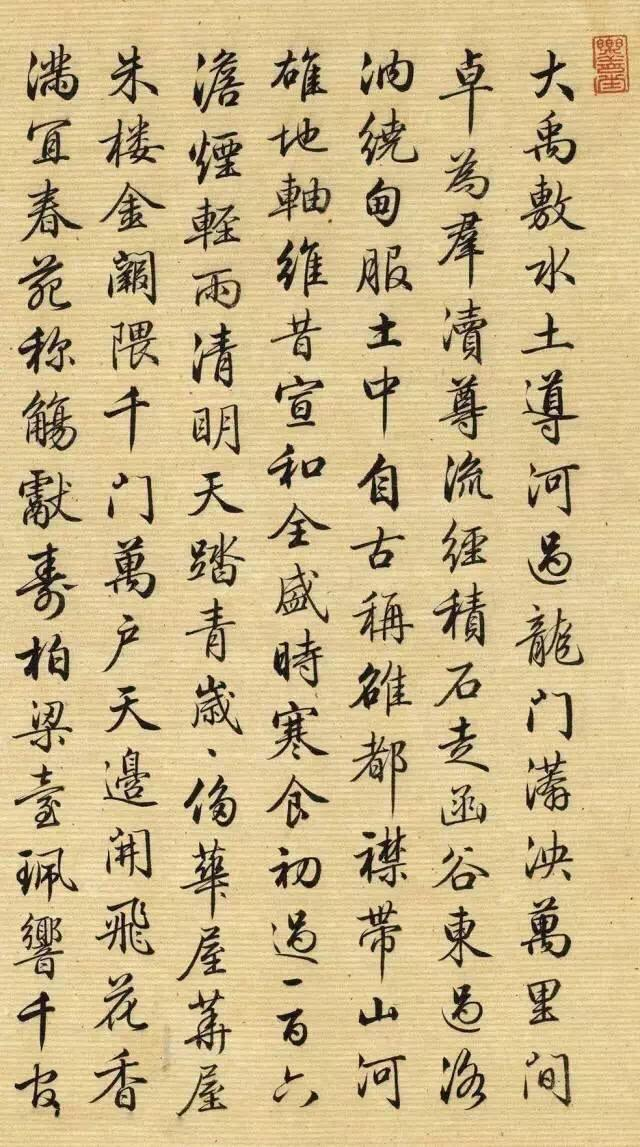 大禹敷水土導河過龍門漭泱萬里間
卓為羣瀆尊流經積石走函谷東過洛
汭繞甸服土中自古稱雄都襟帶山河
雄地軸維昔宣和全盛時寒食初過一百六
澹煙輕雨清明天踏青歲、侈華屋華屋
朱楼金闕隈千门萬戶天邊開飛花香
滿宜春苑称觴獻壽柏梁臺珮響千官